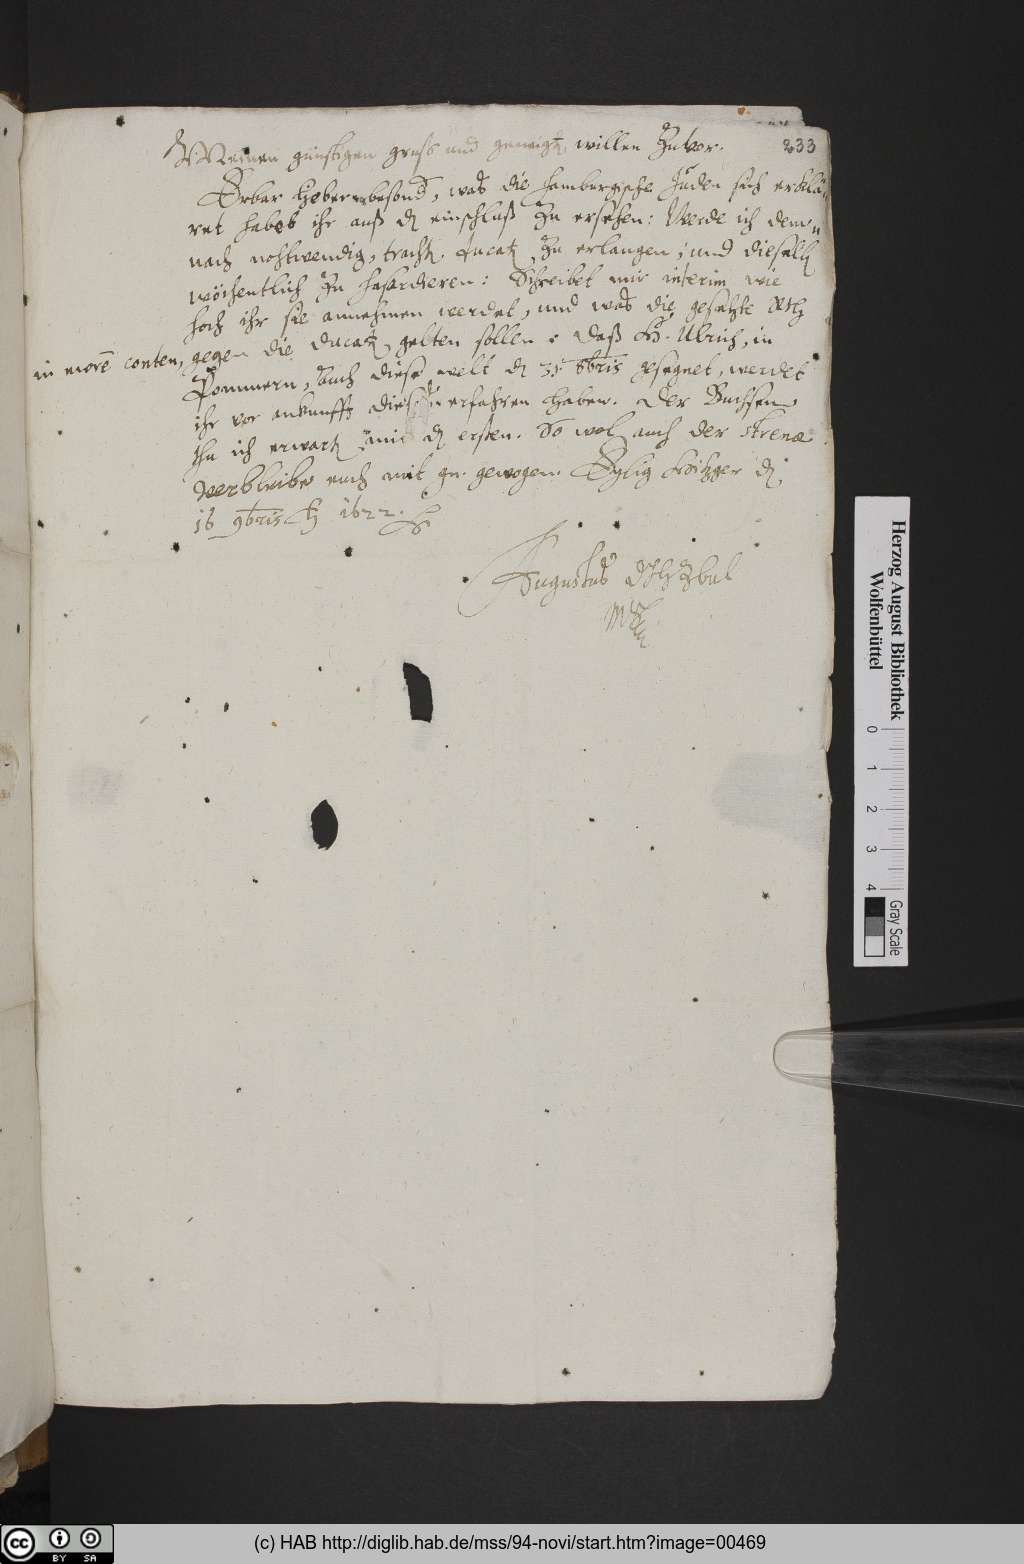 Meinen günstigen gruß und geneigt willen zuvor. 233
Erbar lieber besond, was die hamburgische Juden sich erklä-
ret habeb ihr auß dem einschluß zu ersehen: Werde ich dem-
nach nohtwendig, tracht. ducat zu erlangen; und dieselb
wöchentlich zu hasardieren: Schreibet mir interim wie
hoch ihr sie annehmen werdet, und was die gesetzte
gegen die ducat, gelten sollen. Daß H. Ulrich, in
in more conten,
Pommern, auch diese welt d 31 8bris gesegnet, werdet
ihr vor ankunfft dieses erfahren haben. Der Buchsen
ich erwart mit d ersten. So wol auch der strenae
verbleibe euch mit gn. gewogen. Eylig d
16 9bris 1622.
Augustus
Herzog August Bibliothek
Wolfenbüttel
0 1 2 3 4
Gray Scale
cc BY SA
(c) HAB http://diglib.hab.de/mss/94-novi/start.htm?image=00469